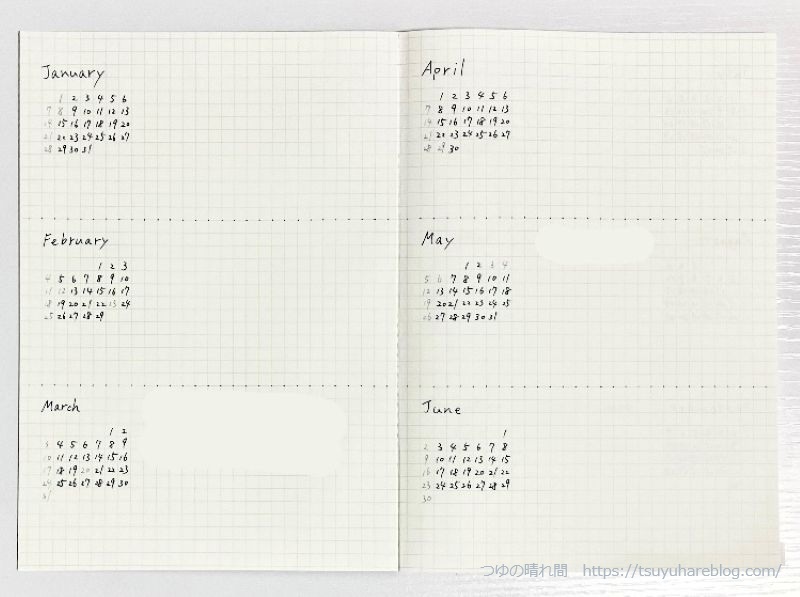 January
1 2 3 4 5 6
7 8 9 10 11 12 13
14 15 16 17 18 19 20
21 22 23 24 25 26 27
28 29 30 31
February
1 2 3
4 5 6 7 8 9 10
11 12 13 14 15 16 17
18 19 20 21 22 23 24
25 26 27 28 29
March
1 2
3 4 5 6 7 8 9
10 11 12 13 14 15 16
17 18 19 20 21 22 23
24 25 26 27 28 29 30
31
April
1 2 3 4 5 6
7 8 9 10 11 12 13
14 15 16 17 18 19 20
21 22 23 24 25 26 27
28 29 30
May
1 2 3 4
5 6 7 8 9 10 11
12 13 14 15 16 17 18
19 20 21 22 23 24 25
26 27 28 29 30 31
June
1
2 3 4 5 6 7 8
9 10 11 12 13 14 15
16 17 18 19 20 21 22
23 24 25 26 27 28 29
30
つゆの晴れ間 https://tsuyuhareblog.com/